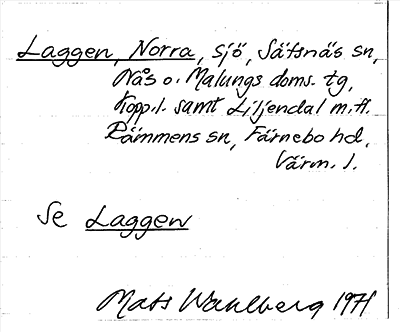 Laggen, Norra, sjö, Säfsnäs sn,
Nås o. Malungs doms. tg,
Kopp. l. samt Liljendal m. fl.
Rämmens sn, Färnebo hd,
Värm. l.
Se Laggen
Mats Wahlberg 1971